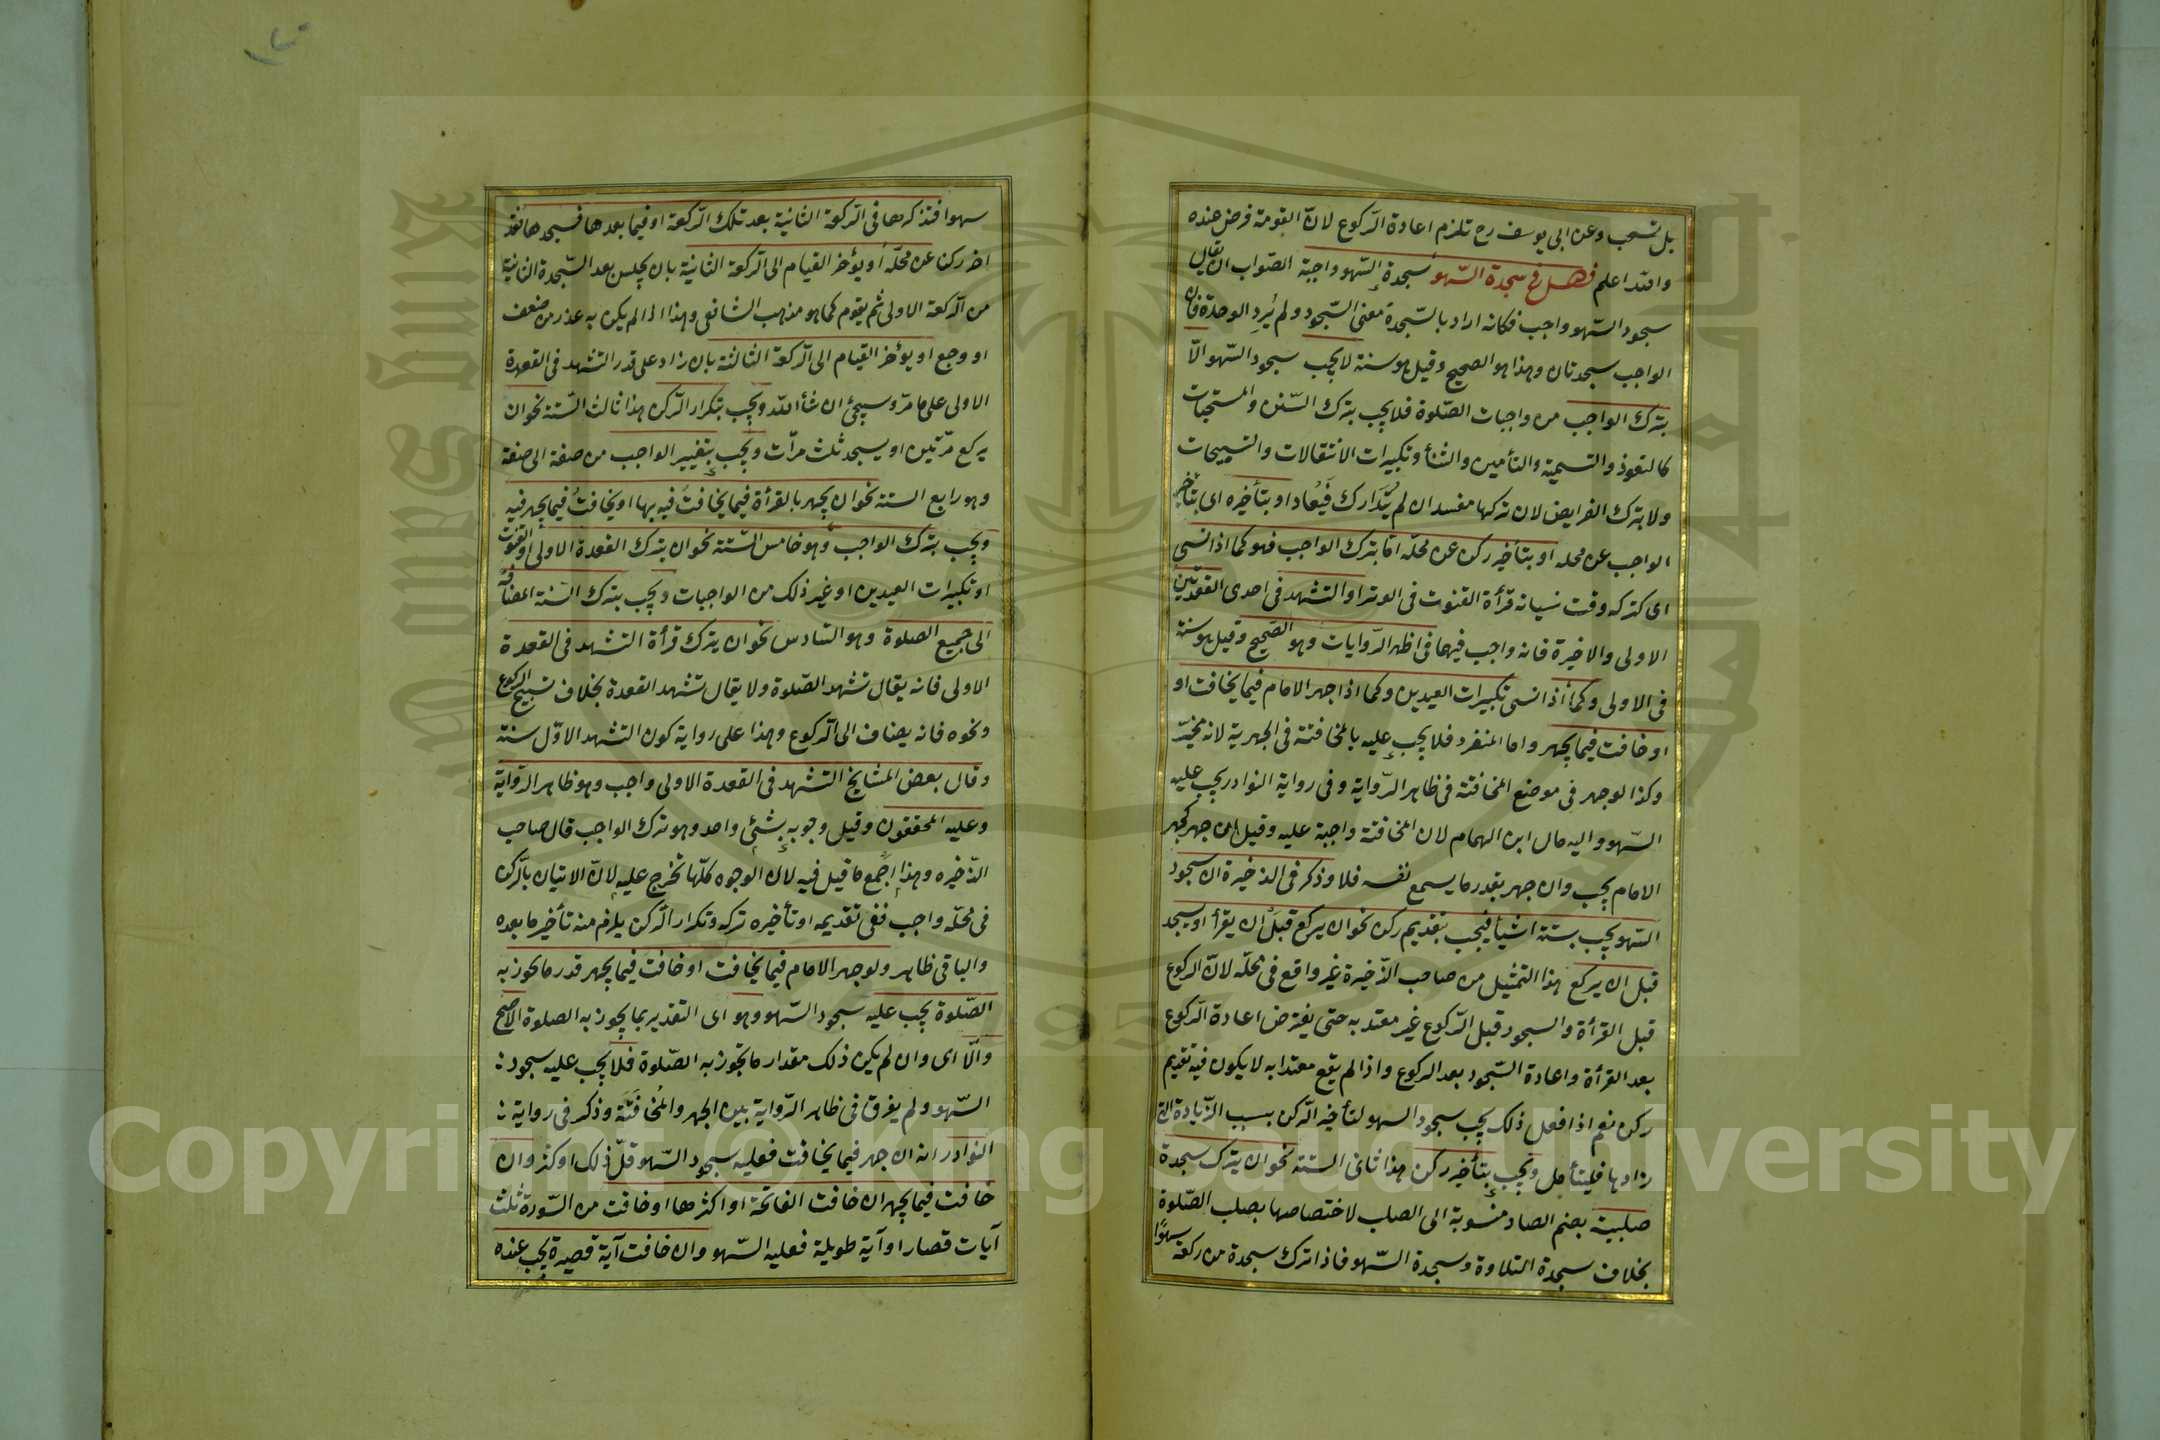 بل تستحب وعن ابى يوسف رح تلزم اعادة الركوع لان القومة فرض عنده
والله اعلم فصل فى سجدة السهو سجدة السهو واجبة الصواب ان يقال
سجود السهو واجب فكانه اراد بالسجدة معنى السجود ولم يُرِد الوحدة فان
الواجب سجدتان وهذا هو الصحيح وقيل هو سنة لا يجب سجود السهو الا
بترك الواجب من واجبات الصلوة فلا يجب بترك السنن والمستحبات
كالتعوذ والتسمية والتأمين والثنأ وتكبيرات الانتقالات والتسبيحات
ولا بترك الفرايض لان تركها مفسد ان لم يُتَدارك فَيُعاد او بتأخيره اى بتأخير
الواجب عن محله او بتأخير ركن عن محله اما بترك الواجب فهو كما اذا نسى
اى كتركه وقت نسيانه قرأة القنوت فى الوتر او التشهد فى احدى القعدتين
الاولى والاخيرة فانه واجب فيهما فى اظهر الروايات وهو الصحيح وقيل هو سنة
فى الاولى وكما اذا نسى تكبيرات العيدين وكما اذا جهر الامام فيما يخافت او
او خافت فيما يجهر واما المنفرد فلا يجب عليه بالمخافتة فى الجهرية لانه مخيّر
وكذا لو جهر فى موضع المخافتة فى ظاهر الرواية وفى رواية النوادر يجب عليه
السهو واليه مال ابن الهمام لان المخافتة واجبة عليه وقيل ان جهر كجهر
الامام يجب وان جهر بقدر ما يسمع نفسه فلا وذكر فى الذخيرة ان سجود
السهو يجب بستة اشيأ فيجب بتقديم ركن نحو ان يركع قبل ان يقرأ او يسجد
قبل ان يركع هذا التمثيل من صاحب الذخيرة غير واقع فى محله لان الركوع
قبل القرأة والسجود قبل الركوع غير معتد به حتى يفترض اعادة الركوع
بعد القرأة واعادة السجود بعد الركوع واذا لم يقع معتدا به لا يكون فيه تقديم
ركن نعم اذا فعل ذلك يجب سجود السهو لتأخير الركن بسبب الزيادة التى
زادها فليتأمل ويجب بتأخير ركن هذا ثانى الستة نحو ان يترك سجدة
صلبية بضم الصاد منسوبة الى الصلب لاختصاصها بصلب الصلوة
بخلاف سجدة التلاوة وسجدة السهو فاذا ترك سجدة من ركعة سهوًا
١٢٠
سهوا فتذكرها فى الركعة الثانية بعد تلك الركعة او فيما بعدها فسجدها فقد
اخر ركنا عن محله او يؤخر القيام الى الركعة الثانية بان يجلس بعد السجدة الثانية
من الركعة الاولى ثم يقوم كما هو مذهب الشافعى وهذا اذا لم يكن به عذر من ضعف
او وجع او يؤخر القيام الى الركعة الثالثة بان زاد على قدر التشهد فى القعدة
الاولى على ما مرّ وسيجئ ان شأ الله ويجب بتكرار الركن هذا ثالث الستة نحو ان
يركع مرّتين او يسجد ثلث مرّات ويجب بتغيير الواجب من صفة الى صفة
وهو رابع الستة نحو ان يجهر بالقرأة فيما يخافت فيه بها او يخافت فيما يجهر فيه
ويجب بترك الواجب وهو خامس الستة نحو ان يترك القعدة الاولى او القنوت
او تكبيرات العيدين او غير ذلك من الواجبات ويجب بترك السنة المضافة
الى جميع الصلوة وهو السادس نحو ان يترك قرأة التشهد فى القعدة
الاولى فانه يقال تشهد الصلوة ولا يقال تشهد القعدة بخلاف تسبيح الركوع
ونحوه فانه يضاف الى الركوع وهذا على رواية كون التشهد الاوّل سنة
وقال بعض المشايخ التشهد فى القعدة الاولى واجب وهو ظاهر الرواية
وعليه المحققون وقيل وجوبه بشئ واحد وهو ترك الواجب قال صاحب
الذخيره وهذا اجمع ما قيل فيه لان الوجوه كلها تخرج عليه لان الاتيان بالركن
فى محله واجب ففى تقديمه او تأخيره تركه وتكرار الركن يلزم منه تأخير ما بعده
والباقى ظاهر ولو جهر الامام فيما يخافت او خافت فيما يجهر قدر ما تجوز به
الصلوة يجب عليه سجود السهو وهو اى التقدير بما يجوز به الصلوة الاصح
والّا اى وان لم يكن ذلك مقدار ما تجوز به الصلوة فلا يجب عليه سجود :
السهو ولم يفرق فى ظاهر الرواية بين الجهر والمخافتة وذكر فى رواية :
النوادر انه ان جهر فيما يخافت فعليه سجود السهو قلّ ذلك او كثر وان
خافت فيما يجهر ان خافت الفاتحة او اكثرها او خافت من السورة ثلث
آيات قصار او آية طويلة فعليه السهو وان خافت آية قصيرة يجب عنده
King Saud University
1957
Copyright © King Saud University